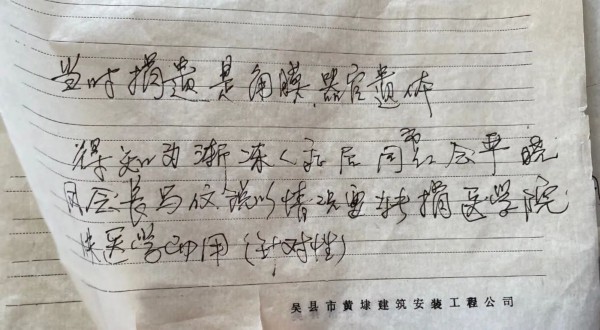 当时捐遗是角膜.器官遗体
得知为渐冻人和后同市红会严晓
凤会长与仪说以情况要转捐医学院
供医学印用(针对性)
吴县市黄埭建筑安装工程公司